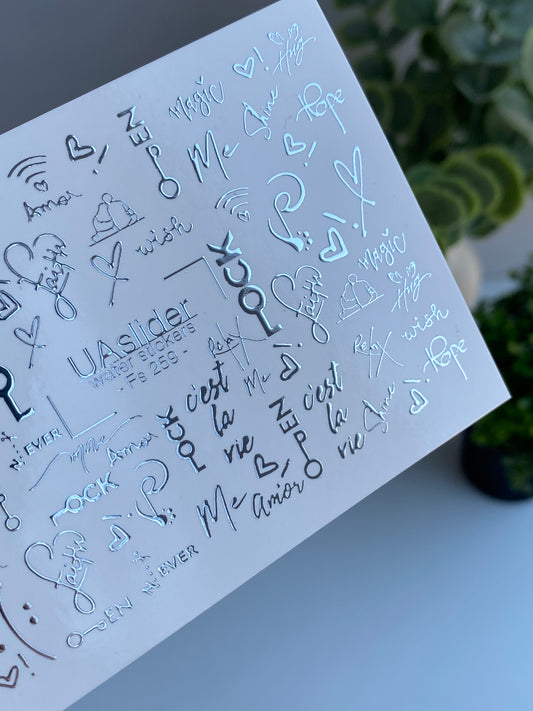 Magic
Hug
Shine
Hope
OPEN
Me
Amor
wish
Faith
ROCK
Magic
Hug
Faith
UAslider
water stickers
- Fs 259 -
Relax
Relax
wish
Hope
Me
c'est
la
vie
c'est
la
vie
Shine
ROCK
OPEN
EVER
Amor
ROCK
Me
Amór
Faith
EVER
OPEN